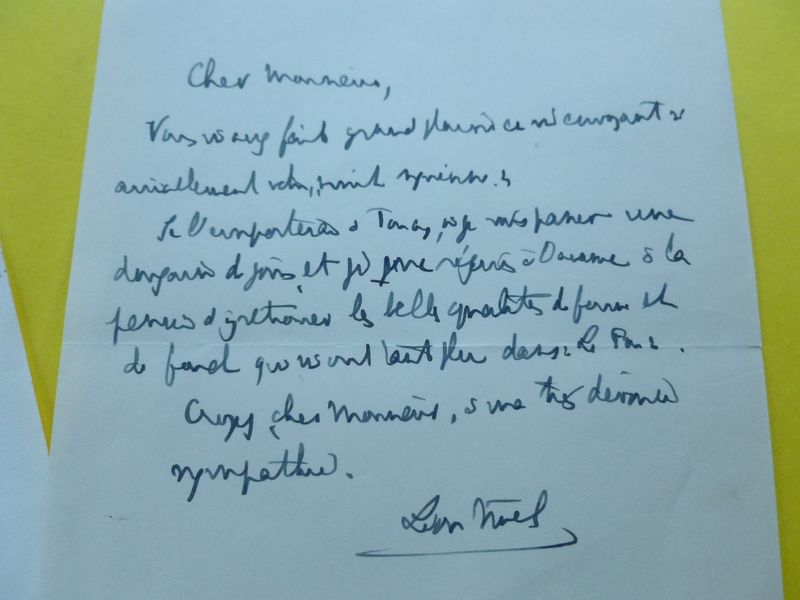 Cher Monsieur,
Vous m'avez fait grand plaisir en m'envoyant si
amicalement votre
Je l'emporterai à où je vais passer une
de jours, et je me réjouis à la
pensée d'y retrouver les belles qualités de forme et
de fond qui m'ont tant plu dans "Le
Croyez, cher Monsieur, à ma très dévouée
sympathie.
Léon Noël